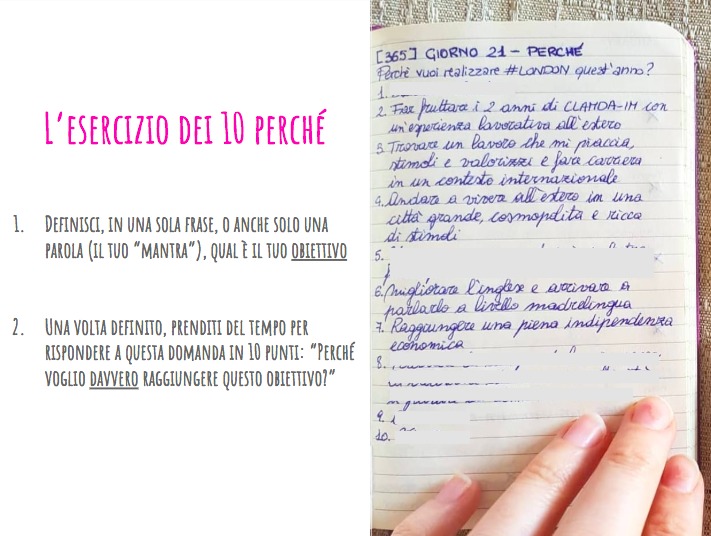 L'ESERCIZIO DEI 10 PERCHÉ
1. DEFINISCI, IN UNA SOLA FRASE, O ANCHE SOLO UNA
PAROLA (IL TUO "MANTRA"), QUAL È IL TUO OBIETTIVO
2. UNA VOLTA DEFINITO, PRENDITI DEL TEMPO PER
RISPONDERE A QUESTA DOMANDA IN 10 PUNTI: "PERCHÉ
VOGLIO DAVVERO RAGGIUNGERE QUESTO OBIETTIVO?"
[365] GIORNO 21 - PERCHÉ
Perché vuoi realizzare #LONDON quest'anno?
1.
2. Far fruttare i 2 anni di CLAMDA-IM con
un'esperienza lavorativa all'estero
3. Trovare un lavoro che mi piaccia,
stimoli e valorizzi e fare carriera
in un contesto internazionale
4. Andare a vivere all'estero in una
città grande, cosmopolita e ricca
di stimoli
5.
6. Migliorare l'inglese e arrivare a
parlarlo a livello madrelingua
7. Raggiungere una piena indipendenza
economica
8.
9.
10.